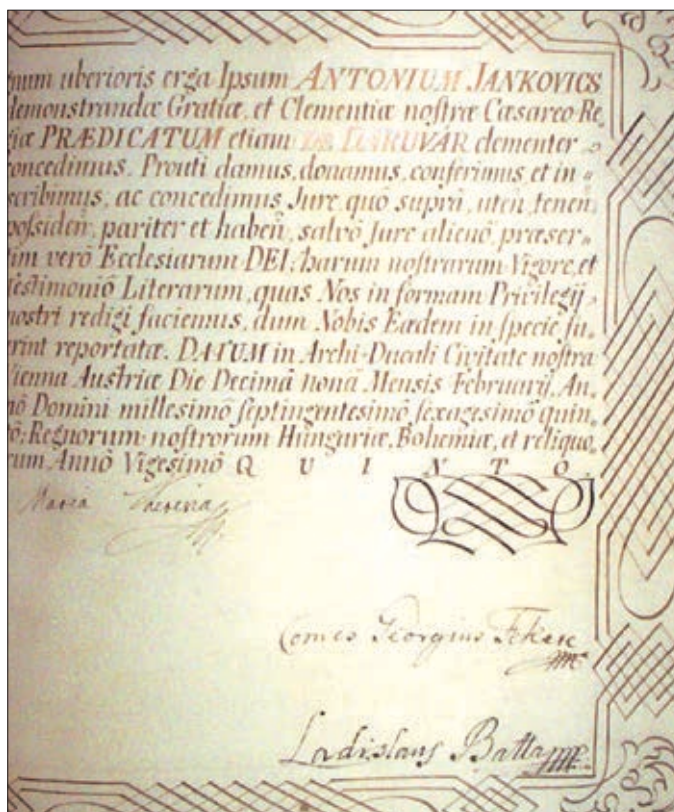 gnum uberioris erga Ipsum ANTONIUM JANKOVICS
demonstrandæ Gratiæ, et Clementiæ nostræ Cæsareo-Re-
giæ PRÆDICATUM etiam DE DARUVÁR clementer
concedimus. Prouti damus, donamus, conferimus et in-
scribimus, ac concedimus Jure, quô suprà, uteñ, teneñ,
possideñ, pariter et habeñ, salvô Jure alienô, præser-
tim verô Ecclesiarum DEI, harum nostrarum Vigore, et
Testimoniô Literarum, quas Nos in formam Privilegij
nostri redigi faciemus, dum Nobis Eædem in specie fu-
erint reportatæ. DATUM in Archi-Ducali Civitate nostra
Vienna Austriæ Die Decimâ nonâ Mensis Februarij, An-
nô Domini millesimô septingentesimô sexagesimô quin-
tô; Regnorum nostrorum Hungariæ, Bohemiæ, et reliquo-
rum Annô Vigesimô QUINTO
Maria Theresia
Comes Georgius Fekete
Ladislaus Batta